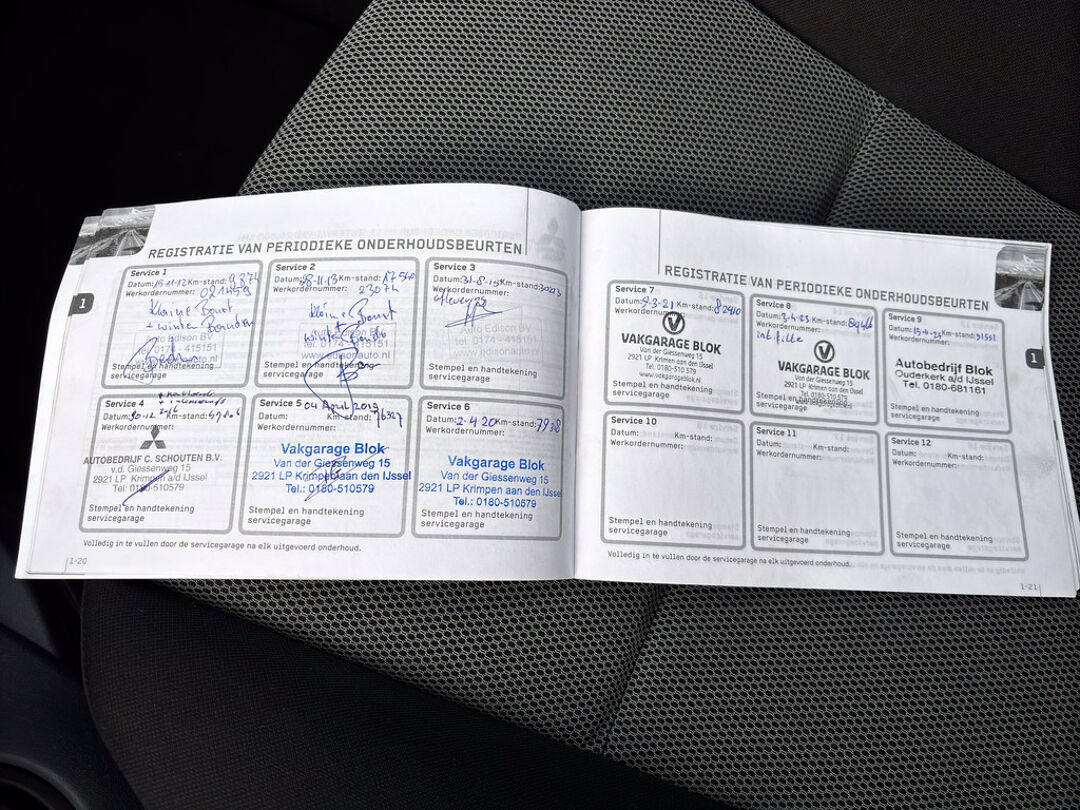 REGISTRATIE VAN PERIODIEKE ONDERHOUDSBEURTEN
1
Service 1
Datum: 15-11-12 Km-stand: 9874
Werkordernummer: 021459
kleine Beurt
+ winter Banden
Stempel en handtekening
servicegarage
Service 2
Datum: 28-11-13 Km-stand: 17540
Werkordernummer: 23074
kleine Beurt
+
winter
Auto Edison BV
Tel. 0174 - 415151
www.edisonauto.nl
Stempel en handtekening
servicegarage
Service 3
Datum: 31-8-15 Km-stand:
Werkordernummer:
Auto Edison BV
Tel. 0174 - 415151
www.edisonauto.nl
Stempel en handtekening
servicegarage
Service 4
Datum: 30-12-2016 Km-stand:
Werkordernummer:
AUTOBEDRIJF C. SCHOUTEN B.V.
v.d. Giessenweg 15
2921 LP Krimpen a/d IJssel
Tel: 0180-510579
Stempel en handtekening
servicegarage
Service 5
04 April 2019
Datum: Km-stand: 76327
Werkordernummer:
Vakgarage Blok
Van der Giessenweg 15
2921 LP Krimpen aan den IJssel
Tel.: 0180-510579
Stempel en handtekening
servicegarage
Service 6
Datum: 2-4-20 Km-stand:
Werkordernummer:
Vakgarage Blok
Van der Giessenweg 15
2921 LP Krimpen aan den IJsse
Tel.: 0180-510579
Stempel en handtekening
servicegarage
Volledig in te vullen door de servicegarage na elk uitgevoerd onderhoud.
1-20
REGISTRATIE VAN PERIODIEKE ONDERHOUDSBEURTEN
1
Service 7
Datum: 9-3-21 Km-stand: 82410
Werkordernummer:
VAKGARAGE BLOK
Van der Giessenweg 15
2921 LP Krimpen aan den IJssel
Tel. 0180-510 579
www.vakgarageblok.nl
Stempel en handtekening
servicegarage
Service 8
Datum: 3-4-23 Km-stand:
Werkordernummer:
VAKGARAGE BLOK
Van der Giessenweg 15
2921 LP Krimpen aan den IJssel
Tel. 0180-510579
Stempel en handtekening
servicegarage
Service 9
Datum: Km-stand:
Werkordernummer:
Autobedrijf Blok
Ouderkerk a/d IJssel
Tel. 0180-681161
Stempel en handtekening
servicegarage
Service 10
Datum: Km-stand:
Werkordernummer:
Stempel en handtekening
servicegarage
Service 11
Datum: Km-stand:
Werkordernummer:
Stempel en handtekening
servicegarage
Service 12
Datum: Km-stand:
Werkordernummer:
Stempel en handtekening
servicegarage
Volledig in te vullen door de servicegarage na elk uitgevoerd onderhoud.
1-21